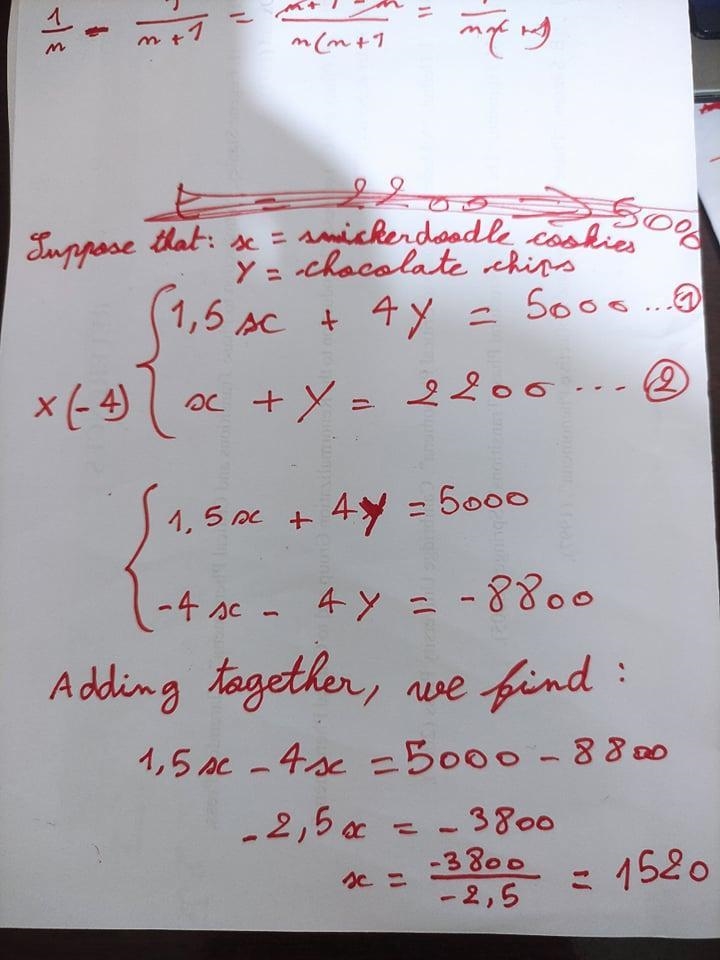 1/n - 1/n+1 = n+1-n/n(n+1 = 1/n(n+1)
2200 5000
Suppose that: x = snickerdoodle cookies
Y = chocolate chips
1,5x + 4Y = 5000 ... ①
x(-4) x + Y = 2200 ... ②
1,5x + 4Y = 5000
-4x - 4Y = -8800
Adding together, we find :
1,5x - 4x = 5000 - 8800
-2,5x = -3800
x = -3800/-2,5 = 1520